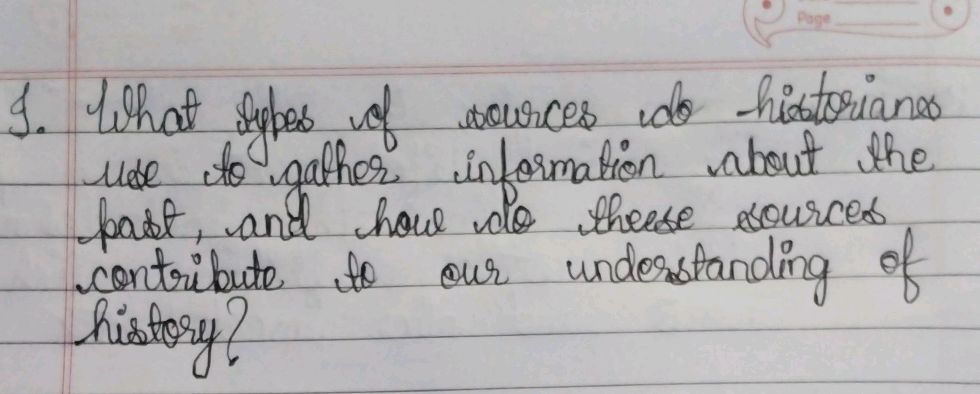 Page
1. What types of sources do historians
use to gather information about the
past, and how do theese sources
contribute to our understanding of
history?